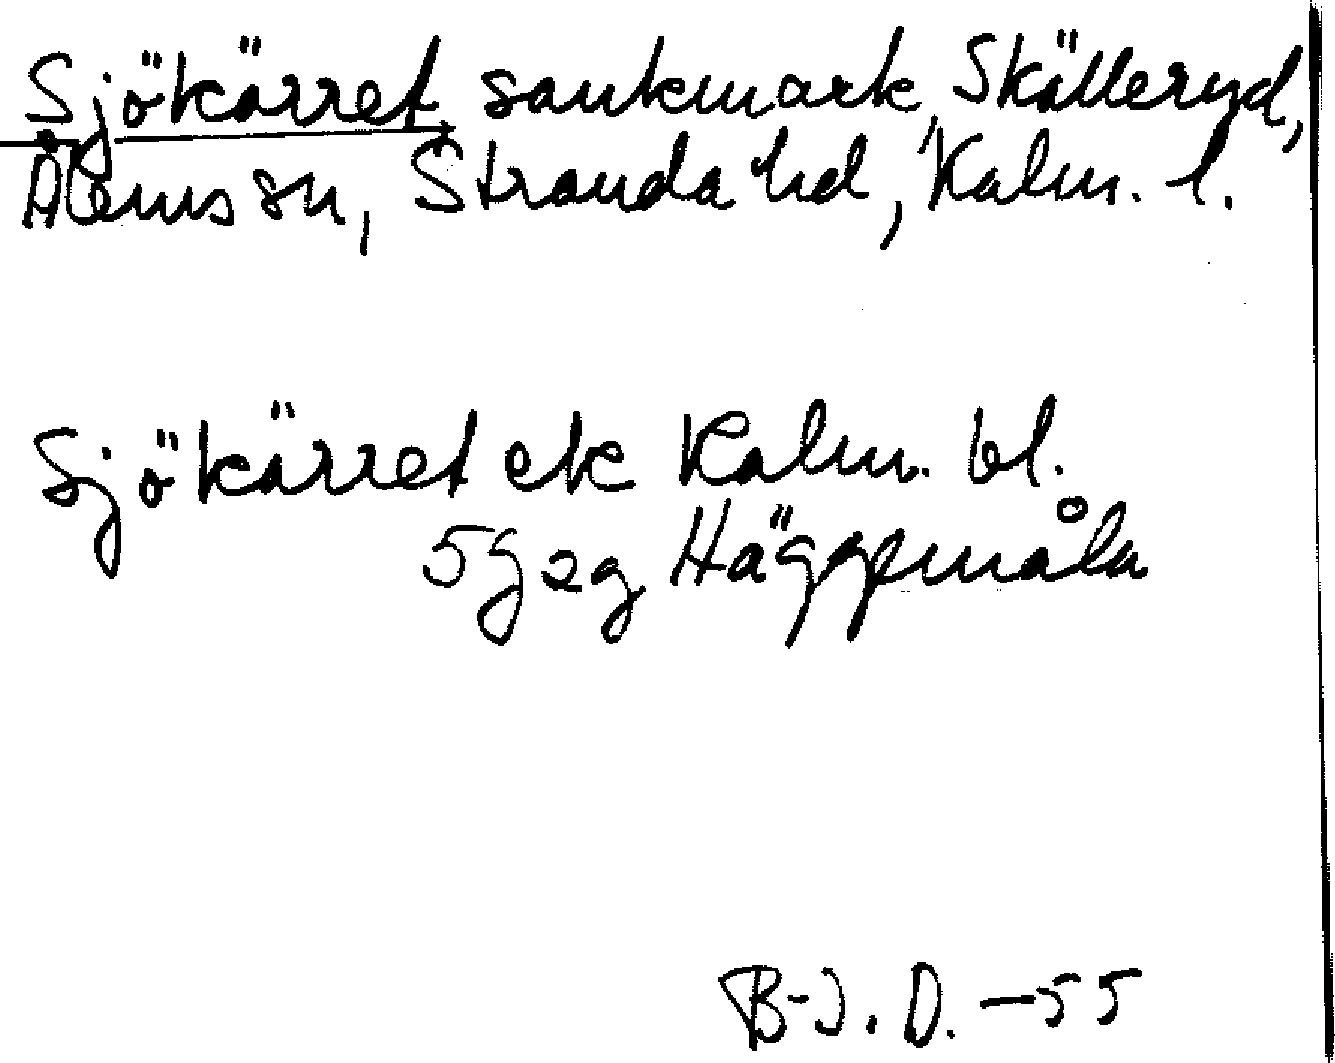 Sjökärret, sankmark, Skälleryd,
Ålems sn, Stranda hd, Kalm. l.
Sjökärret ek Kalm. bl.
5g2g Häggemåla
B-J. D. -55